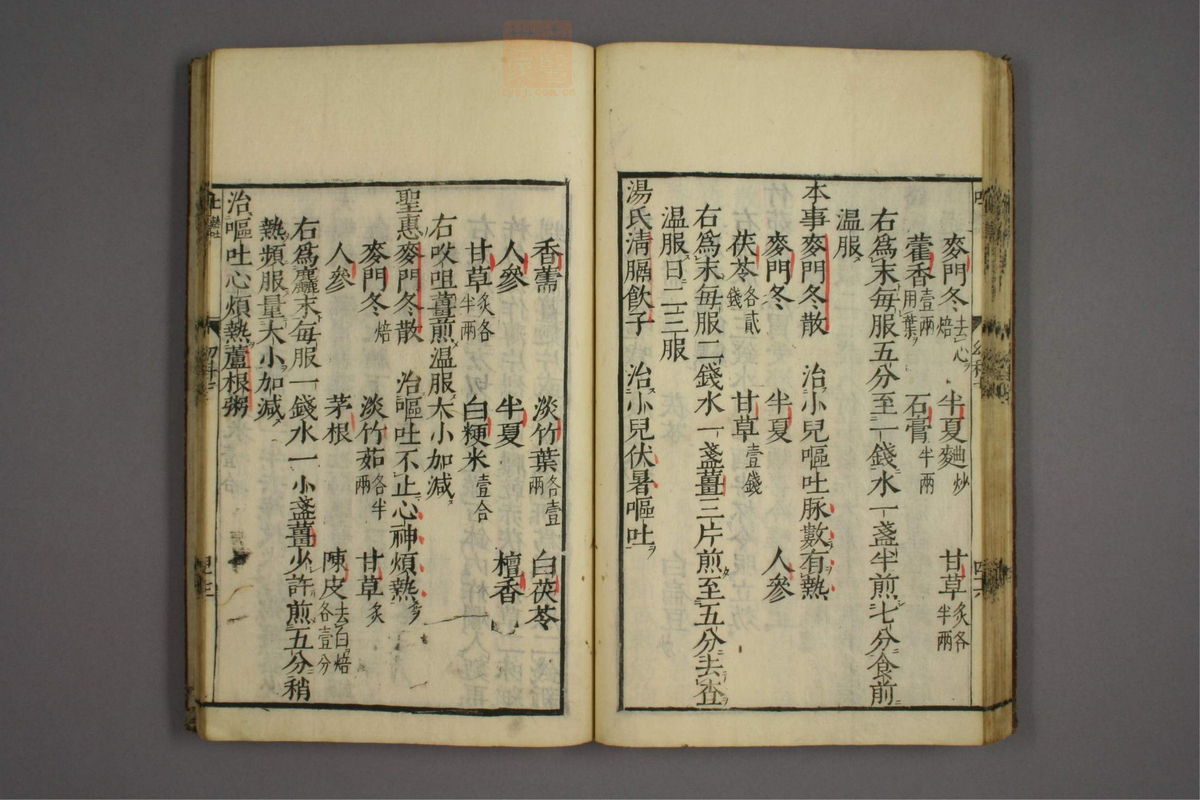 麥門冬去心焙 半夏麯炒 甘草炙各半兩
藿香壹兩用葉 石膏半兩
右爲末每服五分至一錢水一盞半煎七分食前
温服
本事麥門冬散 治小兒嘔吐脉數有熱
麥門冬 半夏 人參
茯苓各貳錢 甘草壹錢
右爲末每服二錢水一盞薑三片煎至五分去查
温服日二三服
湯氏淸膈飲子 治小兒伏暑嘔吐
香薷 淡竹葉各壹兩 白茯苓
人參 半夏 檀香
甘草炙各半兩 白粳米壹合
右㕮咀薑煎温服大小加減
聖惠麥門冬散 治嘔吐不止心神煩熱
麥門冬焙 淡竹茹各半兩 甘草炙
人參 茅根 陳皮去白焙各壹分
右爲麤末每服一錢水一小盞薑少許煎五分稍
熱頻服量大小加減
治嘔吐心煩熱蘆根粥